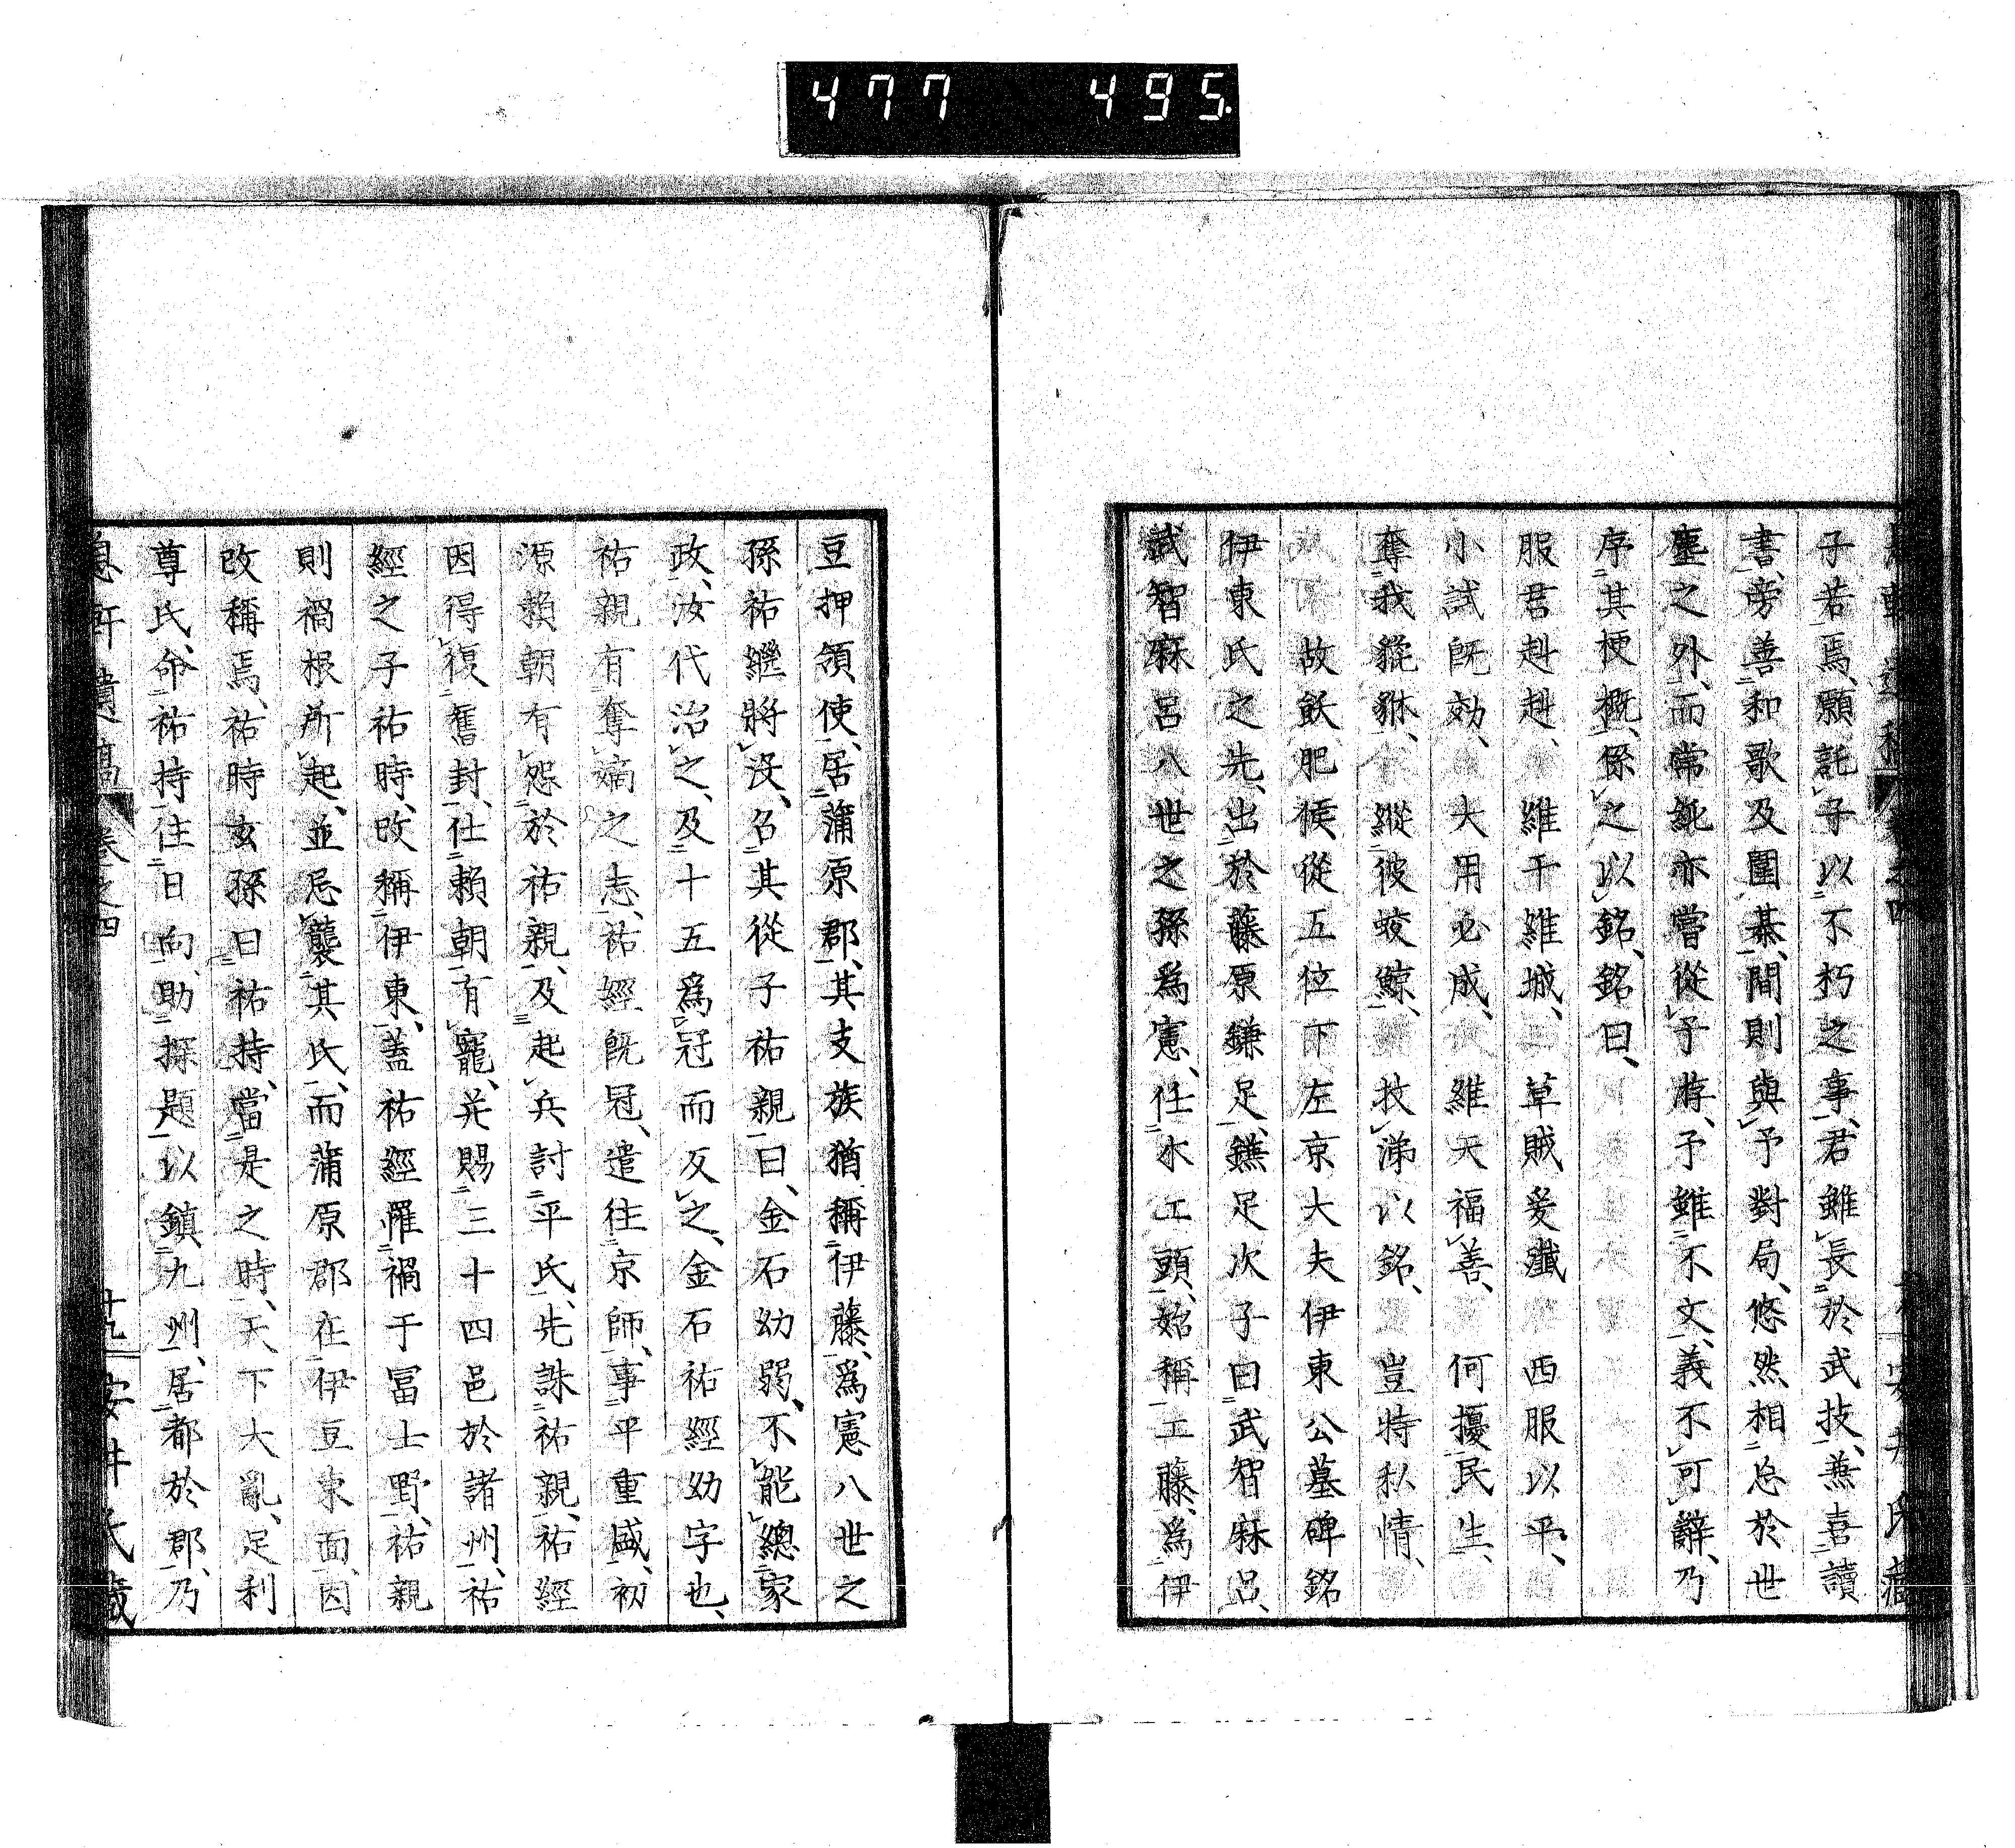 477 495
子若焉、願託子以不朽之事、君雖長於武技、兼喜讀
書、旁善和歌及圍棊、間則與予對局、悠然相忘於世
塵之外、而常純亦嘗從予游、予雖不文、義不可辭、乃
序其梗概、係之以銘、銘曰、
服君赳赳、維干維城、草賊爰殲、西服以平、
小試既効、大用必成、維天福善、何擾民生、
奪我貔貅、縱彼蛟鯨、抆涕以銘、豈特私情、
故飫肥侯、從五位下左京大夫伊東公墓碑銘
伊東氏之先、出於藤原鎌足、鎌足次子曰武智麻呂、
武智麻呂八世之孫爲憲、任木工頭、始稱工藤、爲伊
豆押領使、居蒲原郡、其支族猶稱伊藤、爲憲八世之
孫祐繼將沒、召其從子祐親曰、金石幼弱、不能總家
政、汝代治之、及十五爲冠而反之、金石祐經幼字也、
祐親有奪嫡之志、祐經既冠、遣往京師、事平重盛、初
源賴朝有怨於祐親、及起兵討平氏、先誅祐親、祐經
因得復舊封、仕賴朝有寵、并賜三十四邑於諸州、祐
經之子祐時、改稱伊東、蓋祐經罹禍于冨士野、祐親
則禍根所起、並忌襲其氏、而蒲原郡在伊豆東面、因
改稱焉、祐時玄孫曰祐持、當是之時、天下大亂、足利
尊氏、命祐持往日向、助探題以鎮九州、居都於郡、乃
息軒遺稿 卷之四 十九 安井氏藏